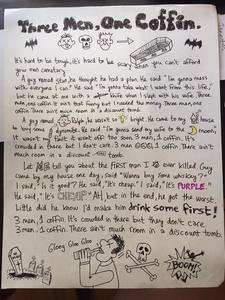 Three Men, One Coffin.
It's hard to be tough, it's hard to be scary when you can't afford
your own cemetary.
A guy named Stan, he thought he had a plan. He said "I'm gonna mess
with everyone I can." He said "I'm gonna take what I want from this life,"
but he came at me with a knife when I slept with his wife. Three
men, one coffin it ain't that funny but I needed the money. Three men, one
coffin. There ain't much room in a discount tomb.
A guy named Ralph, he wasn't so bright. He came to my house
to buy some dynamite. He said "I'm gonna send my wife to the moon,"
but it went off too soon. 3 man, 1 coffin. It's
crowded in there but I don't care. 3 man 1 coffin. There ain't
much room in a discount
Let me tell you about the first man I ever killed. Guy
came by my house one day, said "Wanna buy some whiskey?"
I said, "Is it good?" He said, "It's cheap." I said, "It's PURPLE."
He said, "It's CHEAP." Ah, but in the end, he got the worst.
Little did he know I'd make him drink some first!
3 man, 1 coffin. It's crowded in there but they don't care.
3 man, 1 coffin. There ain't much room in a discount tomb.
Glong Gloo Gloo
BOOM!